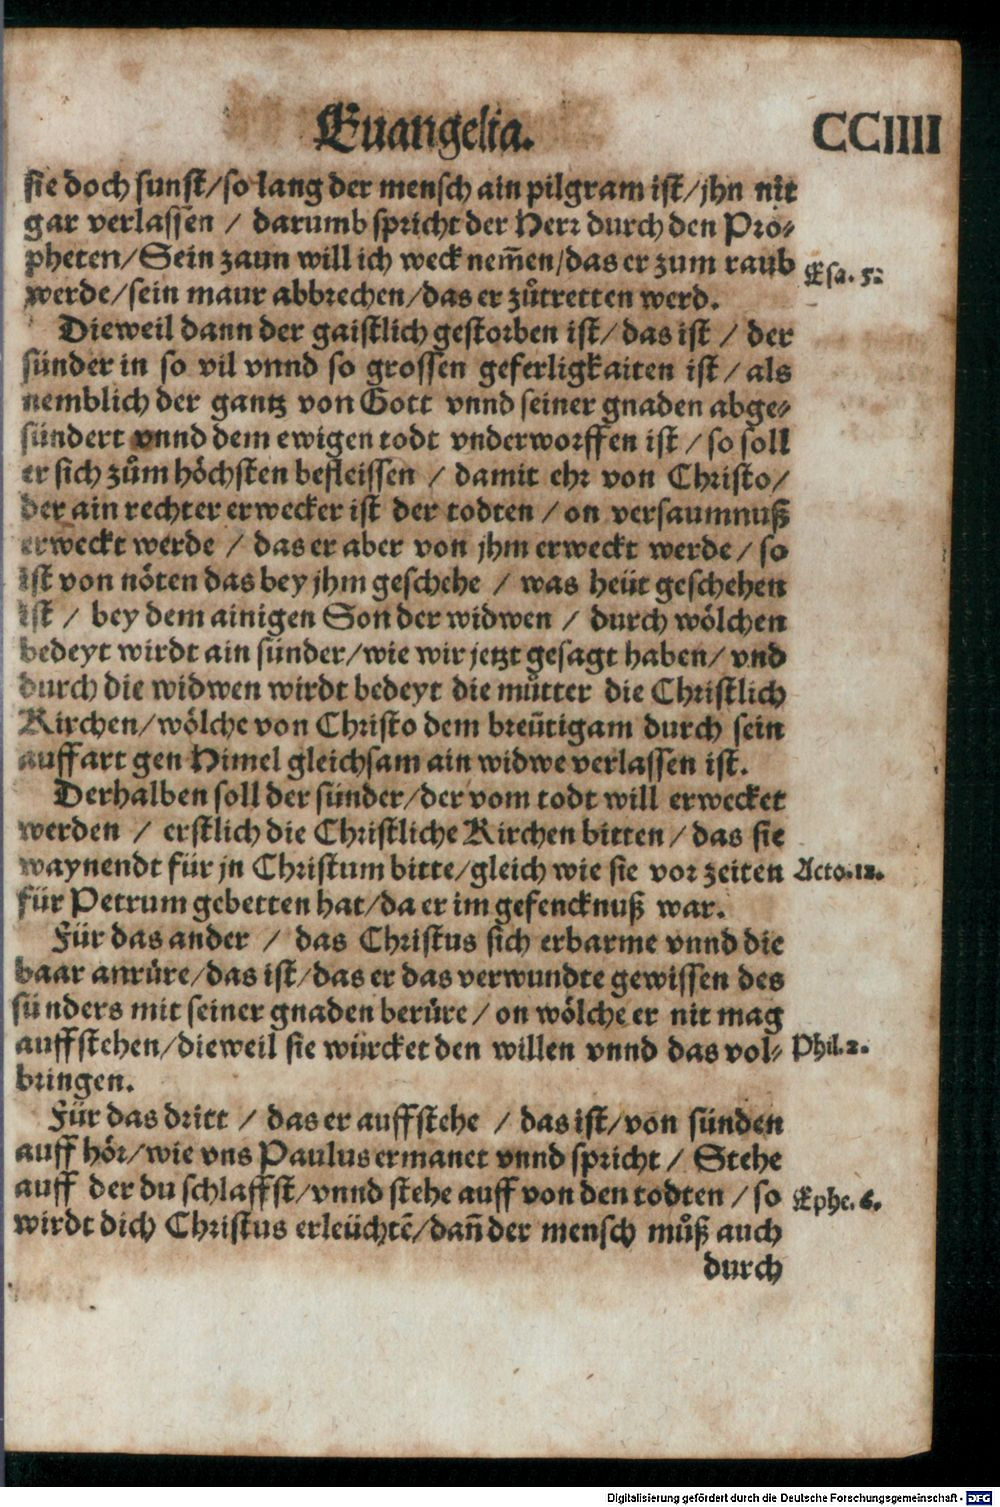 Euangelia. CCIIII
sie doch sunst/so lang der mensch ain pilgram ist/jhn nit
gar verlassen / darumb spricht der Herr durch den Pro-
pheten/Sein zaun will ich weck nem̃en/das er zum raub
werde/sein maur abbrechen/das er zůtretten werd.
Esa. 5.
Dieweil dann der gaistlich gestorben ist/das ist / der
sünder in so vil vnnd so grossen geferligkaiten ist / als
nemblich der gantz von Gott vnnd seiner gnaden abge-
sündert vnnd dem ewigen todt vnderworffen ist / so soll
er sich zům höchsten befleissen / damit ehr von Christo/
der ain rechter erwecker ist der todten / on versaumnuß
erweckt werde / das er aber von jhm erweckt werde / so
ist von nöten das bey jhm geschehe / was heüt geschehen
ist / bey dem ainigen Son der widwen / durch wölchen
bedeyt wirdt ain sünder/wie wir jetzt gesagt haben/ vnd
durch die widwen wirdt bedeyt die můtter die Christlich
Kirchen/wölche von Christo dem breütigam durch sein
auffart gen Himel gleichsam ain widwe verlassen ist.
Derhalben soll der sünder/der vom todt will erwecket
werden / erstlich die Christliche Kirchen bitten / das sie
waynendt für jn Christum bitte/gleich wie sie vor zeiten
Acto. 12.
für Petrum gebetten hat/da er im gefencknuß war.
Für das ander / das Christus sich erbarme vnnd die
baar anrüre/das ist/das er das verwundte gewissen des
sünders mit seiner gnaden berüre / on wölche er nit mag
auffstehen/dieweil sie würcket den willen vnnd das vol-
Phil. 2.
bringen.
Für das dritt / das er auffstehe / das ist/von sünden
auff hör/wie vns Paulus ermanet vnnd spricht / Stehe
auff der du schlaffst/vnnd stehe auff von den todten / so
Ephe. 6.
wirdt dich Christus erleüchtē/dañ der mensch můß auch
durch
Digitalisierung gefördert durch die Deutsche Forschungsgemeinschaft - DFG